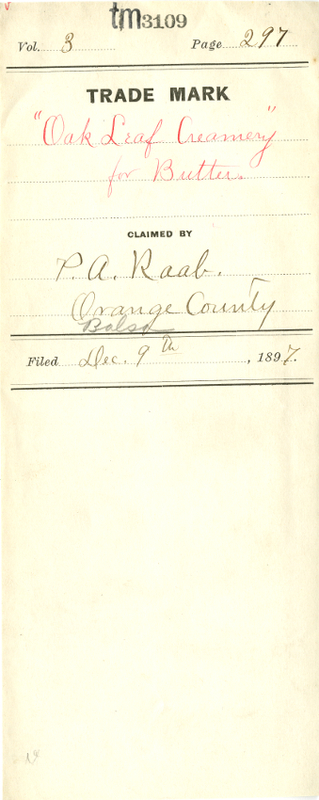 tm3109
Vol. 3 Page 297
TRADE MARK
"Oak Leaf Creamery"
for Butter.
CLAIMED BY
P. A. Raab.
Orange County
Bolsa
Filed Dec. 9th, 1897.